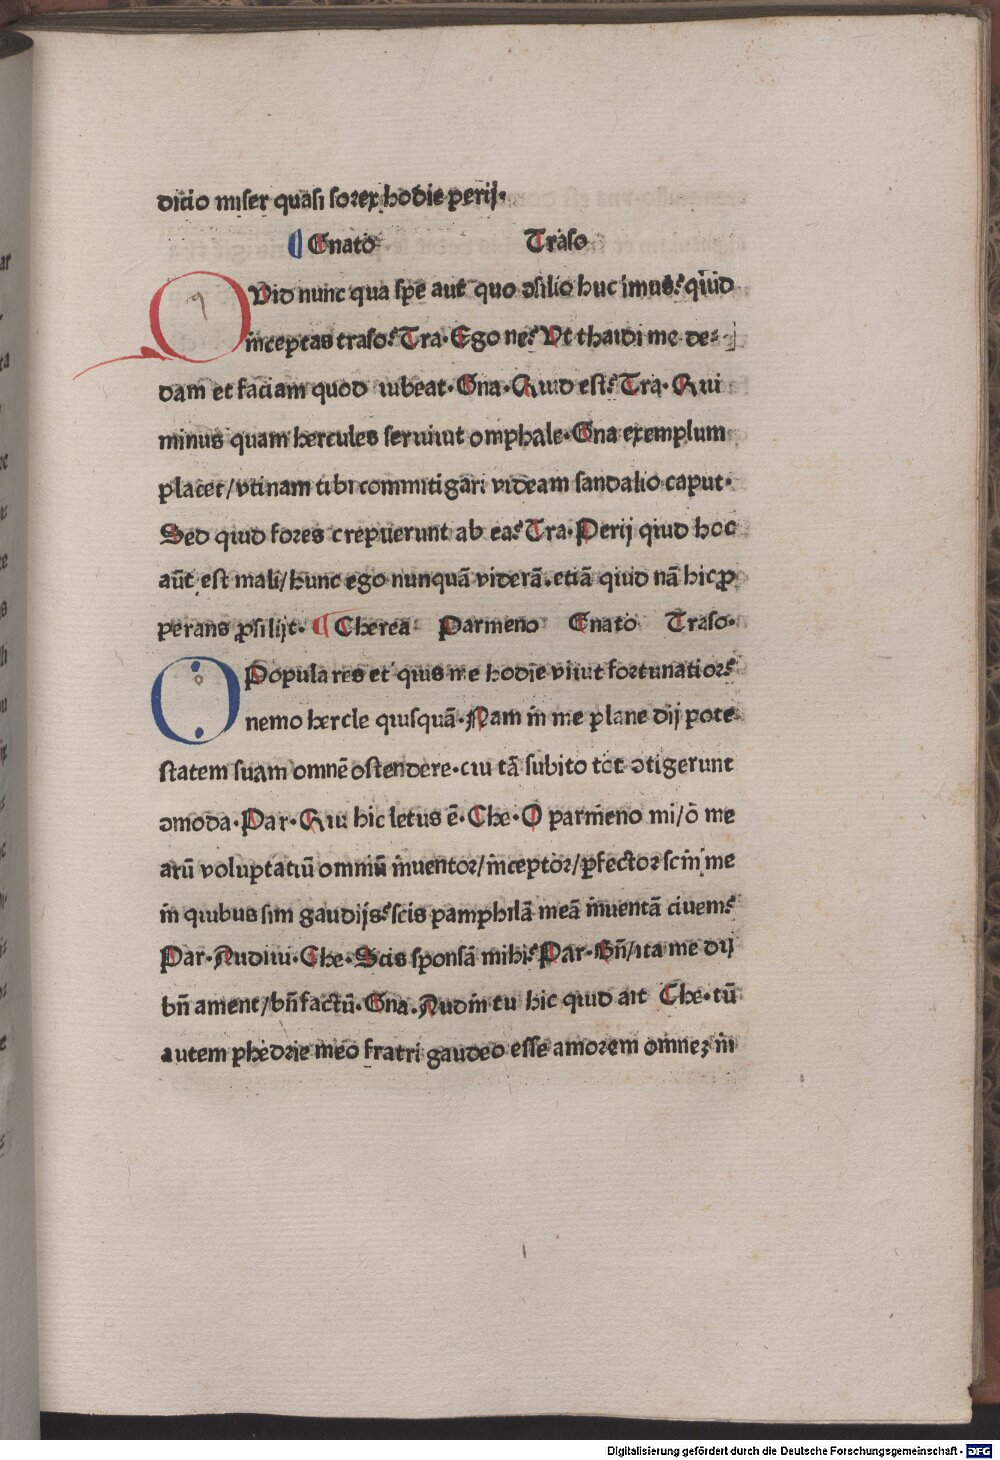 dicio miser quasi sorex hodie perij.
Gnato Traso
QVid nunc qua spe aut quo ↄsilio huc imus? quid
inceptas traso? Tra. Ego ne? Vt thaidi me de-
dam et faciam quod iubeat. Gna. Quid est? Tra. Qui
minus quam hercules seruiuit omphale. Gna exemplum
placet/vtinam tibi commitigari videam sandalio caput.
Sed quid fores crepuerunt ab ea? Tra. Perij quid hoc
aūt est mali/hunc ego nunquā viderā. etiā quid nā hic ꝓ
perans ꝓsilijt. Cherea Parmeno Gnato Traso.
O Populares et quis me hodie viuit fortunatior?
nemo hercle quisquā. Nam in me plane dij pote
statem suam omnē ostendere. cui tā subito tot ↄtigerunt
ↄmoda. Par. Qui hic letus ē. Che. O parmeno mi/o me
arū voluptatiū omniū inuentor/inceptor/ꝑfector scin me
in quibus sim gaudijs? scis pamphilā meā inuentā ciuem?
Par. Audiui. Che. Scis sponsā mihi? Par. Bn̄/ita me dij
bn̄ ament/bn̄ factū. Gna. Audin tu hic quid ait Che. tū
autem phedrie meo fratri gaudeo esse amorem omneꝫ in
Digitalisierung gefördert durch die Deutsche Forschungsgemeinschaft - DFG